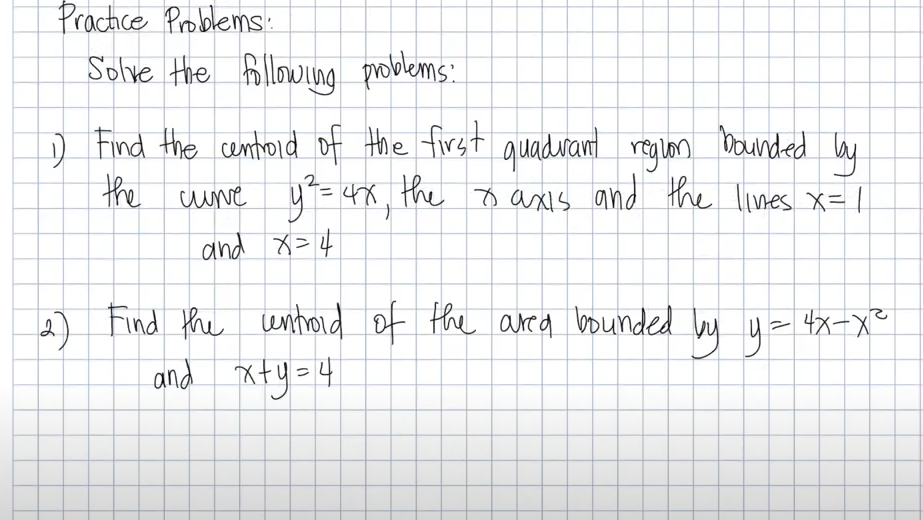 Practice Problems:
Solve the following problems:
1) Find the centroid of the first quadrant region bounded by
the curve y² = 4x, the x axis and the lines x = 1
and x = 4
2) Find the centroid of the area bounded by y = 4x - x²
and x + y = 4